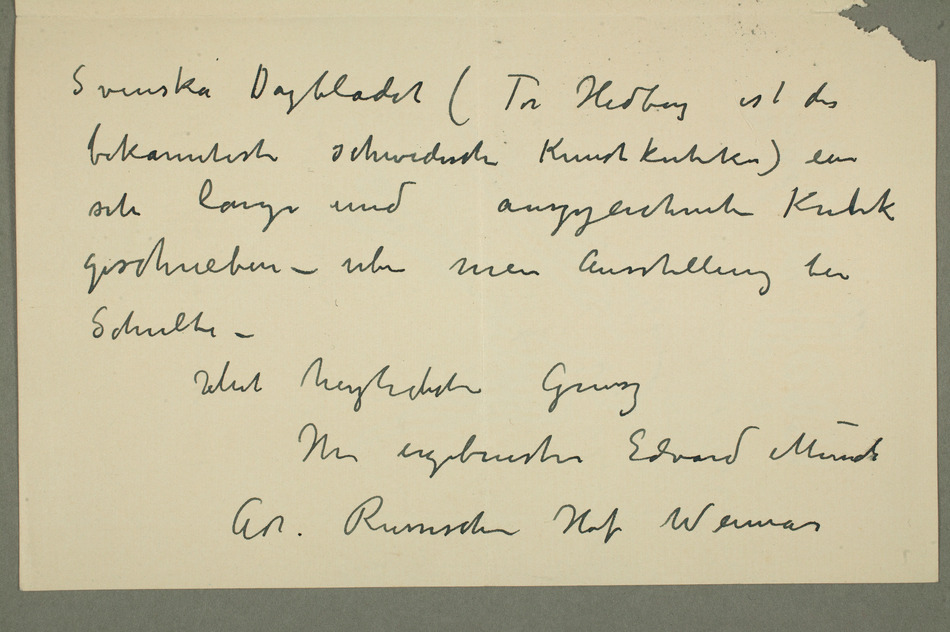 Svenska Dagbladet (Tor Hedberg ist der
bekannteste schwedische Kunstkritiker) eine
sehr lange und ausgezeichnete Kritik
geschrieben – über meine Ausstellung bei
Schulte –
herzlichste Gruss
Ihr ergebenster Edvard Munch
Adr. Russischer Hof Weimar